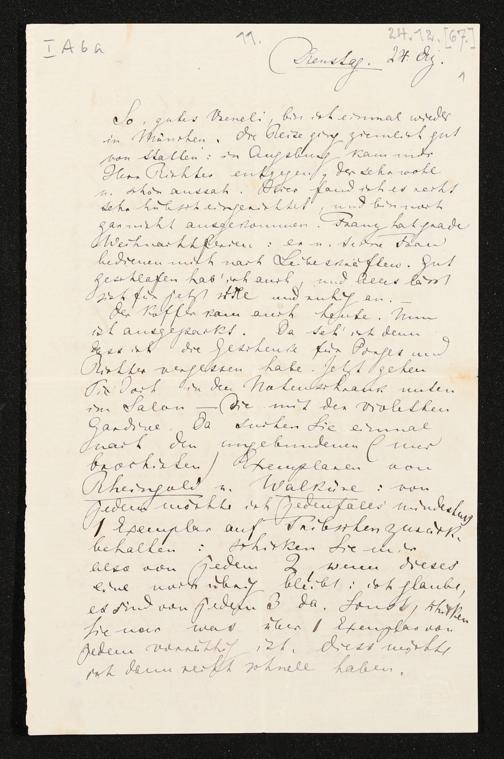 I A b a
11.
24.12.[67.]
Dienstag. 24 Dez.
1
So, gutes Vreneli, bin ich einmal wieder
in München. Die Reise ging ziemlich gut
von Statten: in Augsburg kam mir
Herr Richter entgegen, der sehr wohl
u. schön aussah. Hier fand ich es recht
sehr hübsch eingerichtet, und bin noch
gar nicht ausgekommen. Franz hat grade
Weihnachtsferien: er u. seine Frau
bedienen mich nach Leibeskräften. Gut
geschlafen hab' ich auch, und alles lässt
sich für jetzt still und ruhig an. —
Der Koffer kam auch heute. Nun
ist ausgepackt. Da seh' ich denn
dass ich die Geschenke für Porges und
Richter vergessen habe. Jetzt gehen
Sie dort in den Notenschrank unten
im Salon — die mit der violetten
Gardine. Da suchen Sie einmal
nach den ungebundenen (nur
brochirten) Exemplaren von
Rheingold u. Walküre: von
jedem möchte ich jedenfalls mindestens
1 Exemplar auf Tribschen zurück-
behalten: schicken Sie mir
also von jedem 2, wenn dieses
eine noch übrig bleibt: ich glaube,
es sind von jedem 3 da. Sonst, schicken
Sie nur was über 1 Exemplar von
jedem vorräthig ist. Diess möchte
ich dann recht schnell haben.